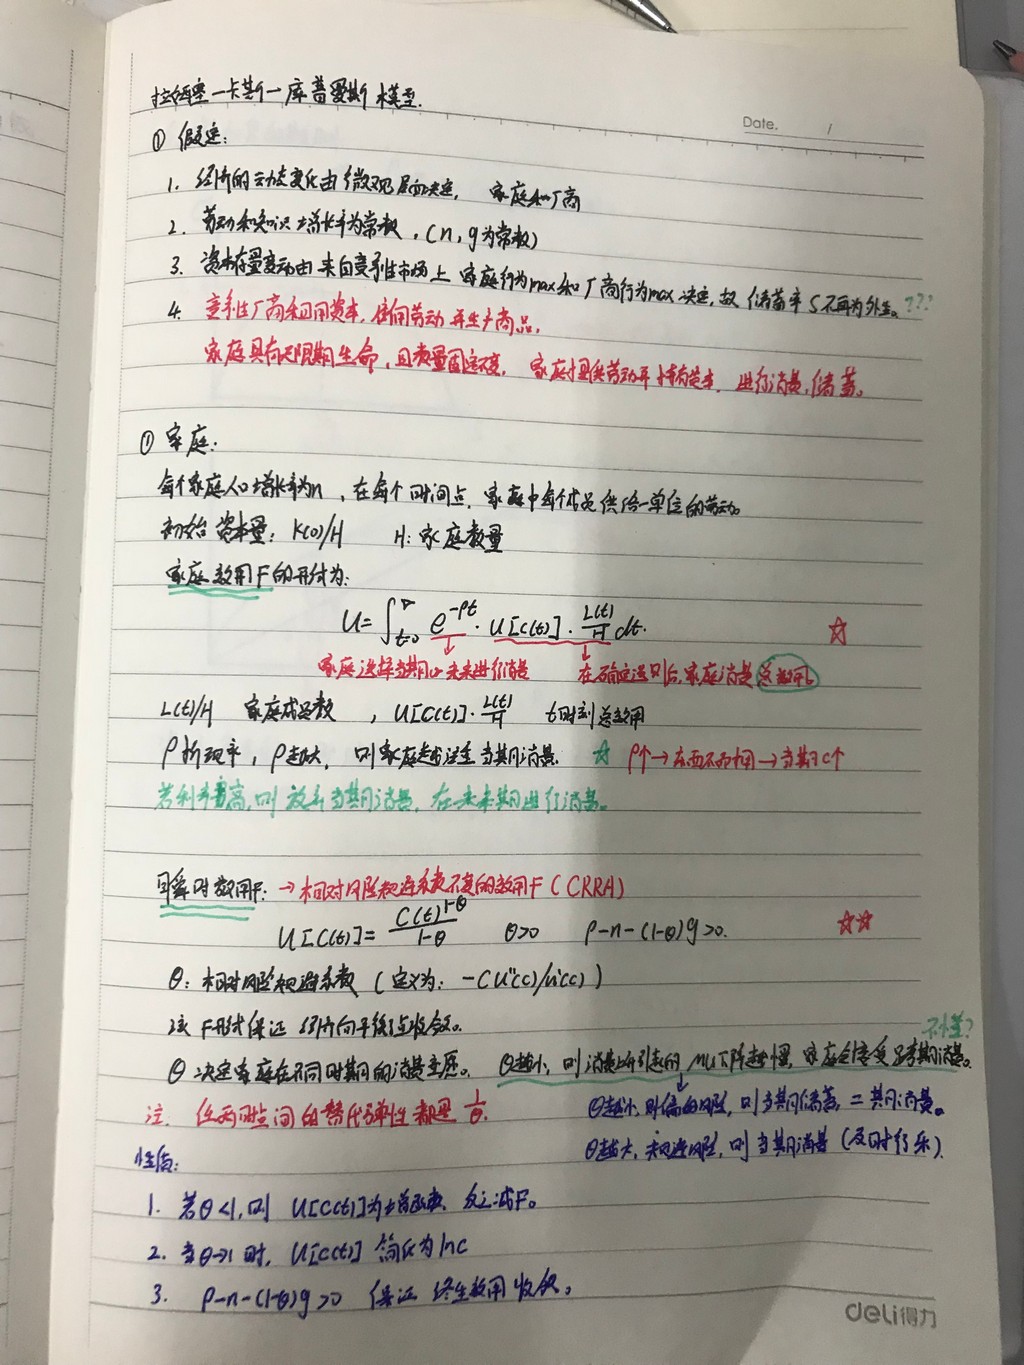 拉姆塞—卡斯—库普曼斯模型.
Date. /
① 假定:
1. 经济的动态变化由微观层面决定, 家庭和厂商
2. 劳动和知识增长率为常数, (n, g为常数)
3. 资本存量变动由来自竞争性市场上家庭行为max和厂商行为max决定,故储蓄率S不再为外生。???
4. 竞争性厂商租用资本,使用劳动并生产商品,
家庭具有无限期生命,且数量固定不变, 家庭提供劳动并持有资本,进行消费,储蓄。
① 家庭:
每个家庭人口增长率为n,在每个时间点,家庭中每个成员供给一单位的劳动。
初始资本量: K(0)/H H: 家庭数量
家庭效用F的形式为:
U=∫t=0^∞ e^-ρt · U[C(t)] · L(t)/H dt.
家庭选择当期or未来进行消费 在确定选则后,家庭消费总效用
L(t)/H 家庭成员数 , U[C(t)]·L(t)/H t时刻总效用
ρ折现率, ρ越大, 则家庭越注重当期消费. ρ↑→东西不耐用→当期C↑
若利率更高,则放弃当期消费,在未来期进行消费。
瞬时效用F: →相对风险规避系数不变的效用F (CRRA)
U[C(t)]= C(t)^1-θ / 1-θ θ>0 ρ-n-(1-θ)g>0.
θ: 相对风险规避系数 (定义为: -CU''(c)/u'(c))
该F形式保证经济向平衡点收敛。
不懂?
θ决定家庭在不同时期的消费意愿。 θ越小,则消费上升引起的MU下降越慢,家庭会接受跨期消费。
注 任两时点间的替代弹性都是 1/θ. θ越小,则偏好风险,则当期储蓄,二期消费。
性质: θ越大,规避风险,则当期消费(及时行乐).
1. 若θ<1,则 U[C(t)]为增函数, 反之减F。
2. 当θ→1时, U[C(t)] 简化为lnc
3. ρ-n-(1-θ)g>0 保证 终生效用收敛。
deli得力